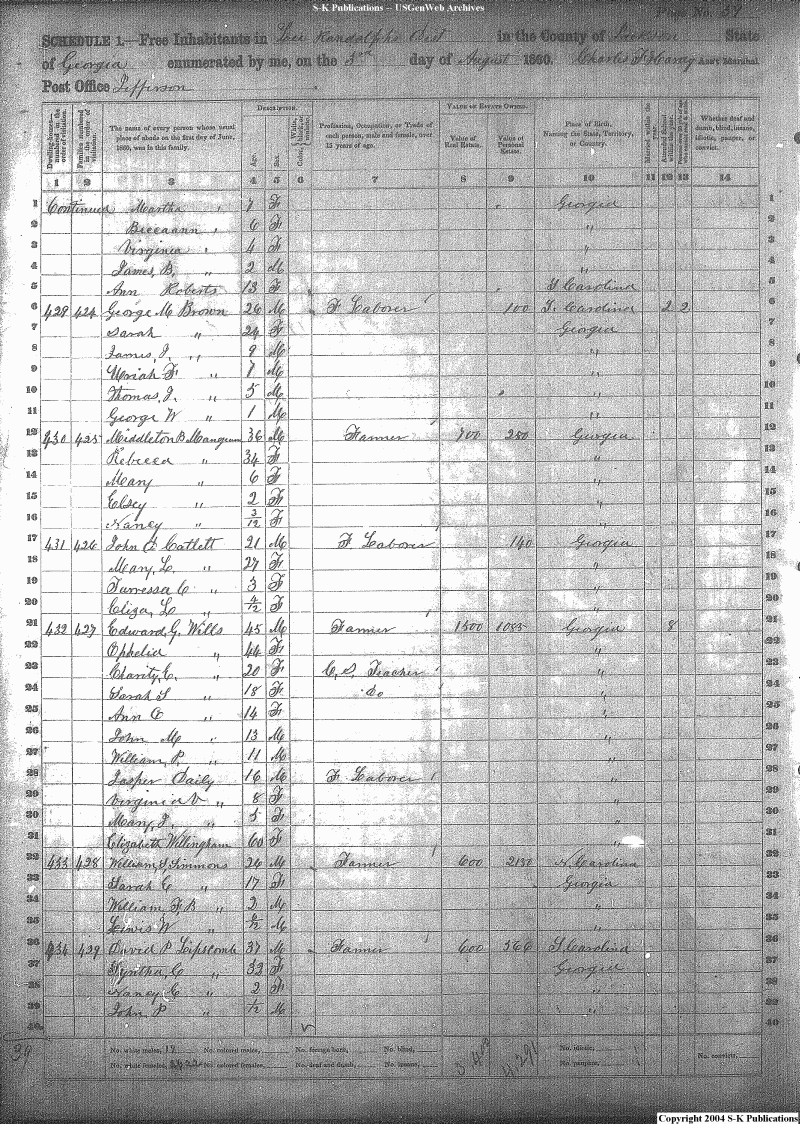 S-K Publications -- USGenWeb Archives
Page No. 59
SCHEDULE 1.—Free Inhabitants in The Randolphs Dist in the County of Jackson State
of Georgia enumerated by me, on the 3rd day of August 1860. Ass't Marshal
Post Office Jefferson
Dwelling-houses—numbered in the order of visitation. Families numbered in the order of visitation. The name of every person whose usual place of abode on the first day of June, 1860, was in this family. DESCRIPTION. Age. Sex. Color, Profession, Occupation, or Trade of each person, male and female, over 15 years of age. VALUE OF ESTATE OWNED. Value of Real Estate. Value of Personal Estate. Place of Birth, Naming the State, Territory, or Country. Married within the year. Whether deaf and dumb, blind, insane, idiotic, pauper, or convict.
1 2 3 4 5 6 7 8 9 10 11 12 13 14
1 Continued Martha " 7 F Georgia 1
2 " 6 F " 2
3 Virginia " 4 F 3
4 James, B. " 2 M " 4
5 Ann Roberts 13 F S Carolina 5
6 429 424 George M Brown 26 M F Laborer 100 S. Carolina 2 2 6
7 Sarah " 24 F Georgia 7
8 James, J. " 9 M " 8
9 Uriah F " 7 M " 9
10 Thomas, J. " 5 M " 10
11 George W " 1 M " 11
12 430 425 Middleton B Mangum 36 M Farmer 700 250 Georgia 12
13 Rebecca " 34 F " 13
14 Mary " 6 F " 14
15 Elsey " 2 F " 15
16 Nancy " 3/12 F " 16
17 431 426 John E Catlett 21 M F Laborer 140 Georgia 17
18 Mary, L " 27 F " 18
19 Turressa C " 3 F " 19
20 Eliza, L " 4/12 F " 20
21 432 427 Edward, G. Wills 45 M Farmer 1500 1085 Georgia 8 21
22 Ophelia " 44 F " 22
23 Charity, C. " 20 F C. S. Teacher " 23
24 Sarah S " 18 F Do " 24
25 Ann E " 14 F " 25
26 John M " 13 M " 26
27 William, P. " 11 M " 27
28 Jasper Daily 16 M F Laborer " 28
29 Virginia V " 8 F " 29
30 Mary, J. " 5 F " 30
31 Elizabeth Willingham 60 F " 31
32 433 428 William S, Simmons 26 M Farmer 600 2150 N. Carolina 32
33 Sarah C " 17 F Georgia 33
34 William, F, B " 2 M " 34
35 Lewis W " M " 35
36 434 429 David P Lipscomb 37 M Farmer 600 566 S Carolina 36
37 Syntha, C " 32 F Georgia 37
38 Nancy C " 2 F " 38
39 John P " 1/12 M " 39
40 40
39
No. white males, 18 No. colored males, No. foreign born, No. blind, No. idiotic,
No. white females, 22 No. colored females, No. deaf and dumb, No. insane, No. paupers, No. convicts,
3,400 4,291
Copyright 2004 S-K Publications